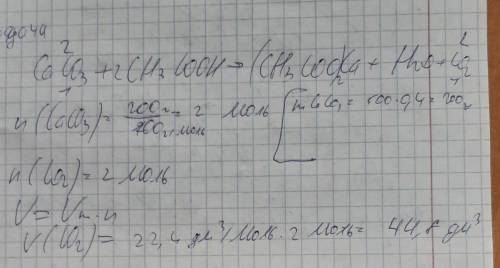 дача
2 2
CaCO3 + 2CH3COOH → (CH3COO)2Ca + H2O + CO2
1 1
n(CaCO3) = 200г/100г/моль = 2 моль
mCaCO3 = 500·0,4 = 200г
n(CO2) = 2 моль
V = Vm·n
V(CO2) = 22,4 дм³/моль · 2 моль = 44,8 дм³